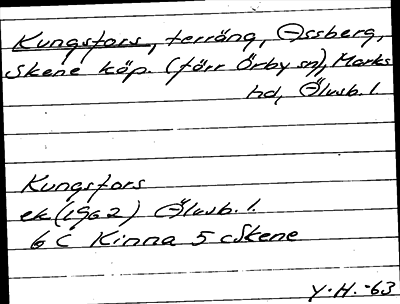 Kungsfors, terräng, Assberg,
Skene köp. (förr Örby sn), Marks
hd, Älvsb. l.
Kungsfors
ek (1962) Älvsb. l.
6 C Kinna 5 c Skene
Y.H. -63